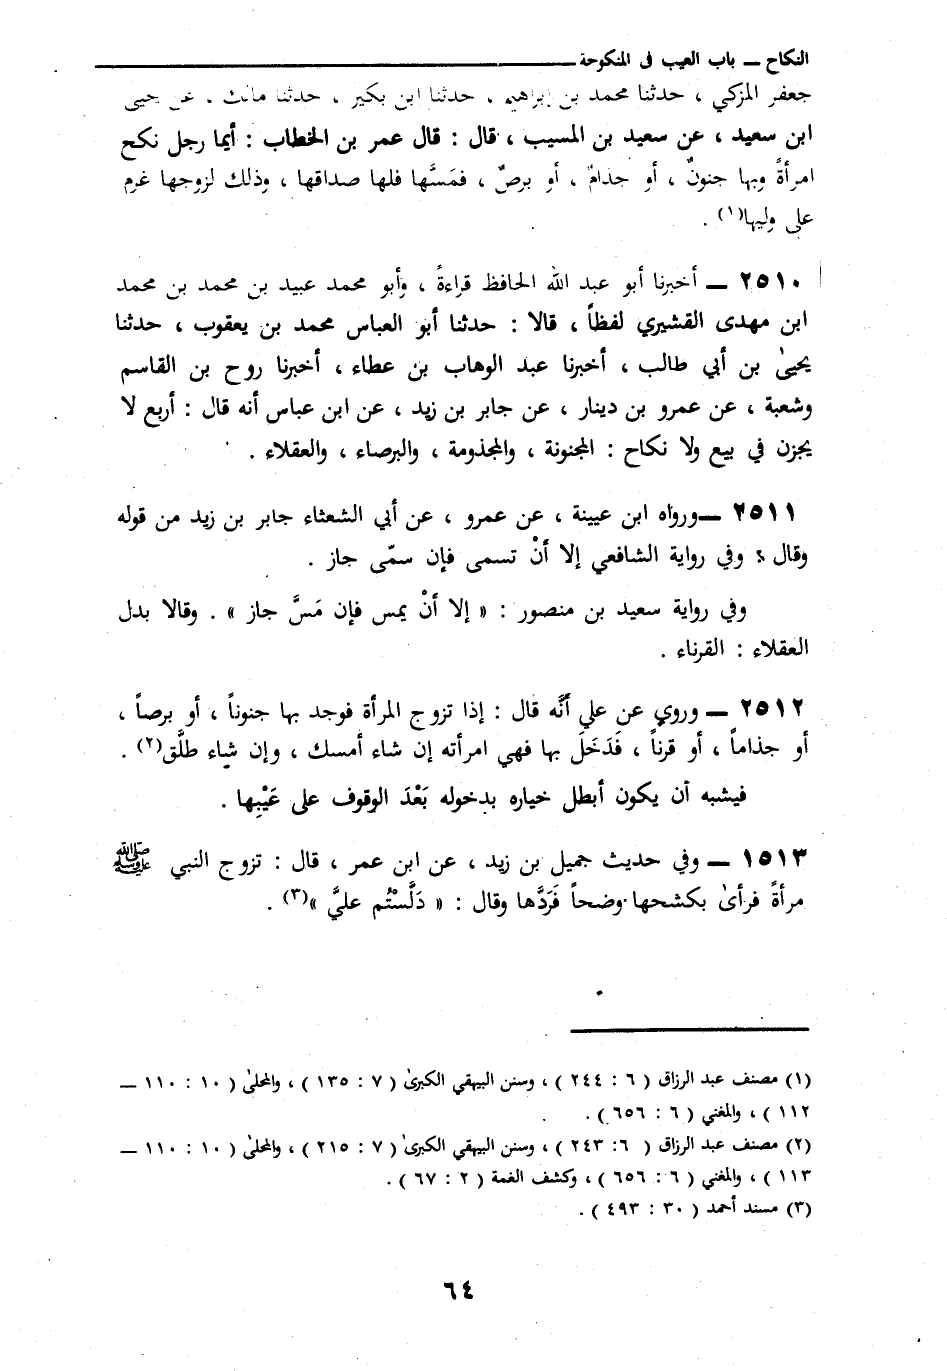 النكاح — باب العيب فى المنكوحة
جعفر المزكي ، حدثنا محمد بن إبراهيم ، حدثنا ابن بكير ، حدثنا مالك ، عن يحيى
ابن سعيد ، عن سعيد بن المسيب ، قال : قال عمر بن الخطاب : أيما رجل نكح
امرأةً وبها جنونٌ ، أو جذامٌ ، أو برصٌ ، فمَسَّها فلها صداقها ، وذلك لزوجها غرم
على وليها(١) .
٢٥١٠ — أخبرنا أبو عبد الله الحافظ قراءةً ، وأبو محمد عبيد بن محمد بن محمد
ابن مهدى القشيري لفظاً ، قالا : حدثنا أبو العباس محمد بن يعقوب ، حدثنا
يحيىٰ بن أبي طالب ، أخبرنا عبد الوهاب بن عطاء ، أخبرنا روح بن القاسم
وشعبة ، عن عمرو بن دينار ، عن جابر بن زيد ، عن ابن عباس أنه قال : أربع لا
يجزن في بيع ولا نكاح : المجنونة ، والمجذومة ، والبرصاء ، والعقلاء .
٢٥١١ —ورواه ابن عيينة ، عن عمرو ، عن أبي الشعثاء جابر بن زيد من قوله
وقال ؛ وفي رواية الشافعي إلا أنْ تسمى فإن سمّى جاز .
وفي رواية سعيد بن منصور : « إلا أنْ يمس فإن مَسَّ جاز » . وقالا بدل
العقلاء : القرناء .
٢٥١٢ — وروي عن علي أنَّه قال : إذا تزوج المرأة فوجد بها جنوناً ، أو برصاً ،
أو جذاماً ، أو قرناً ، فَدَخَلَ بها فهي امرأته إن شاء أمسك ، وإن شاء طلَّق(٢) .
فيشبه أن يكون أبطل خياره بدخوله بَعْدَ الوقوف على عَيْبِها .
١٥١٣ — وفي حديث جميل بن زيد ، عن ابن عمر ، قال : تزوج النبي ﷺ
مرأةً فرأىٰ بكشحها وضحاً فَرَدَّها وقال : « دَلَّسْتُم عليَّ »(٣) .
(١) مصنف عبد الرزاق ( ٦ : ٢٤٤ ) ، وسنن البيهقي الكبرىٰ ( ٧ : ١٣٥ ) ، والمحلىٰ ( ١٠ : ١١٠ —
١١٢ ) ، والمغني ( ٦ : ٦٥٦ ) .
(٢) مصنف عبد الرزاق ( ٦ : ٢٤٣ ) ، وسنن البيهقي الكبرىٰ ( ٧ : ٢١٥ ) ، والمحلىٰ ( ١٠ : ١١٠ —
١١٣ ) ، والمغني ( ٦ : ٦٥٦ ) ، وكشف الغمة ( ٢ : ٦٧ ) .
(٣) مسند أحمد ( ٣٠ : ٤٩٣ ) .
٦٤